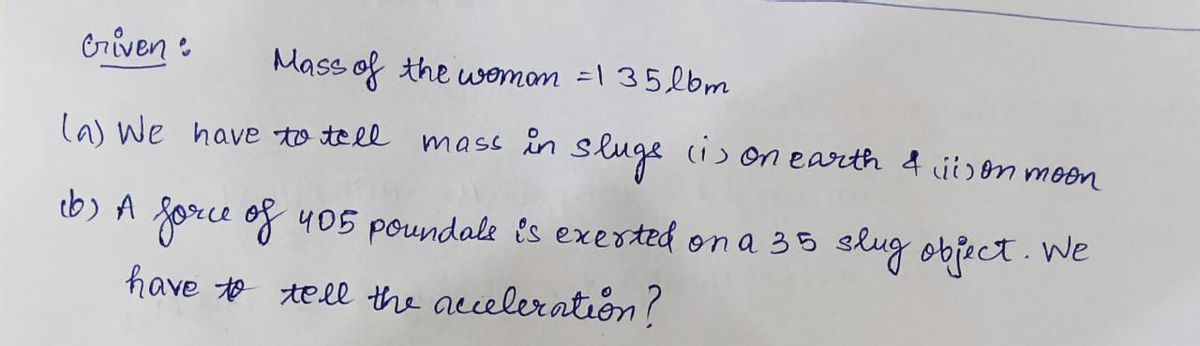 Given :
Mass of the woman = 135 lbm
(a) We have to tell mass in slugs (i) on earth & (ii) on moon
(b) A force of 405 poundals is exerted on a 35 slug object. We
have to tell the acceleration?